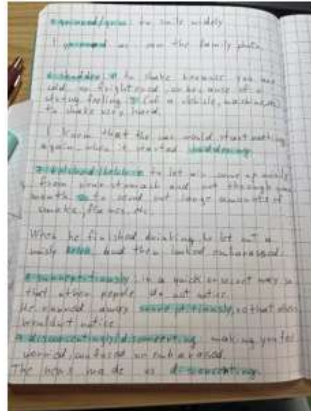 grinned/grin: to smile widely
I grinned as saw the family photo
shudder: to shake because you are
cold or frightened or because of a
strong feeling (of a vehicle, machine
to shake very hard.
I knew that the car would start
again when it started shuddering.
belched/belch: to let air come up noisily
from your stomach and out through your
mouth to send out large amounts of
smoke, flames, etc.
When he finished drinking he let out a
noisy belch and then looked embarrassed.
surreptitiously: in a quick or secret way so
that other people do not notice
He moved away surreptitiously, so that
wouldn't notice
disconcerting: making you feel
worried, confused or embarrassed.
The news made us disconcerting.